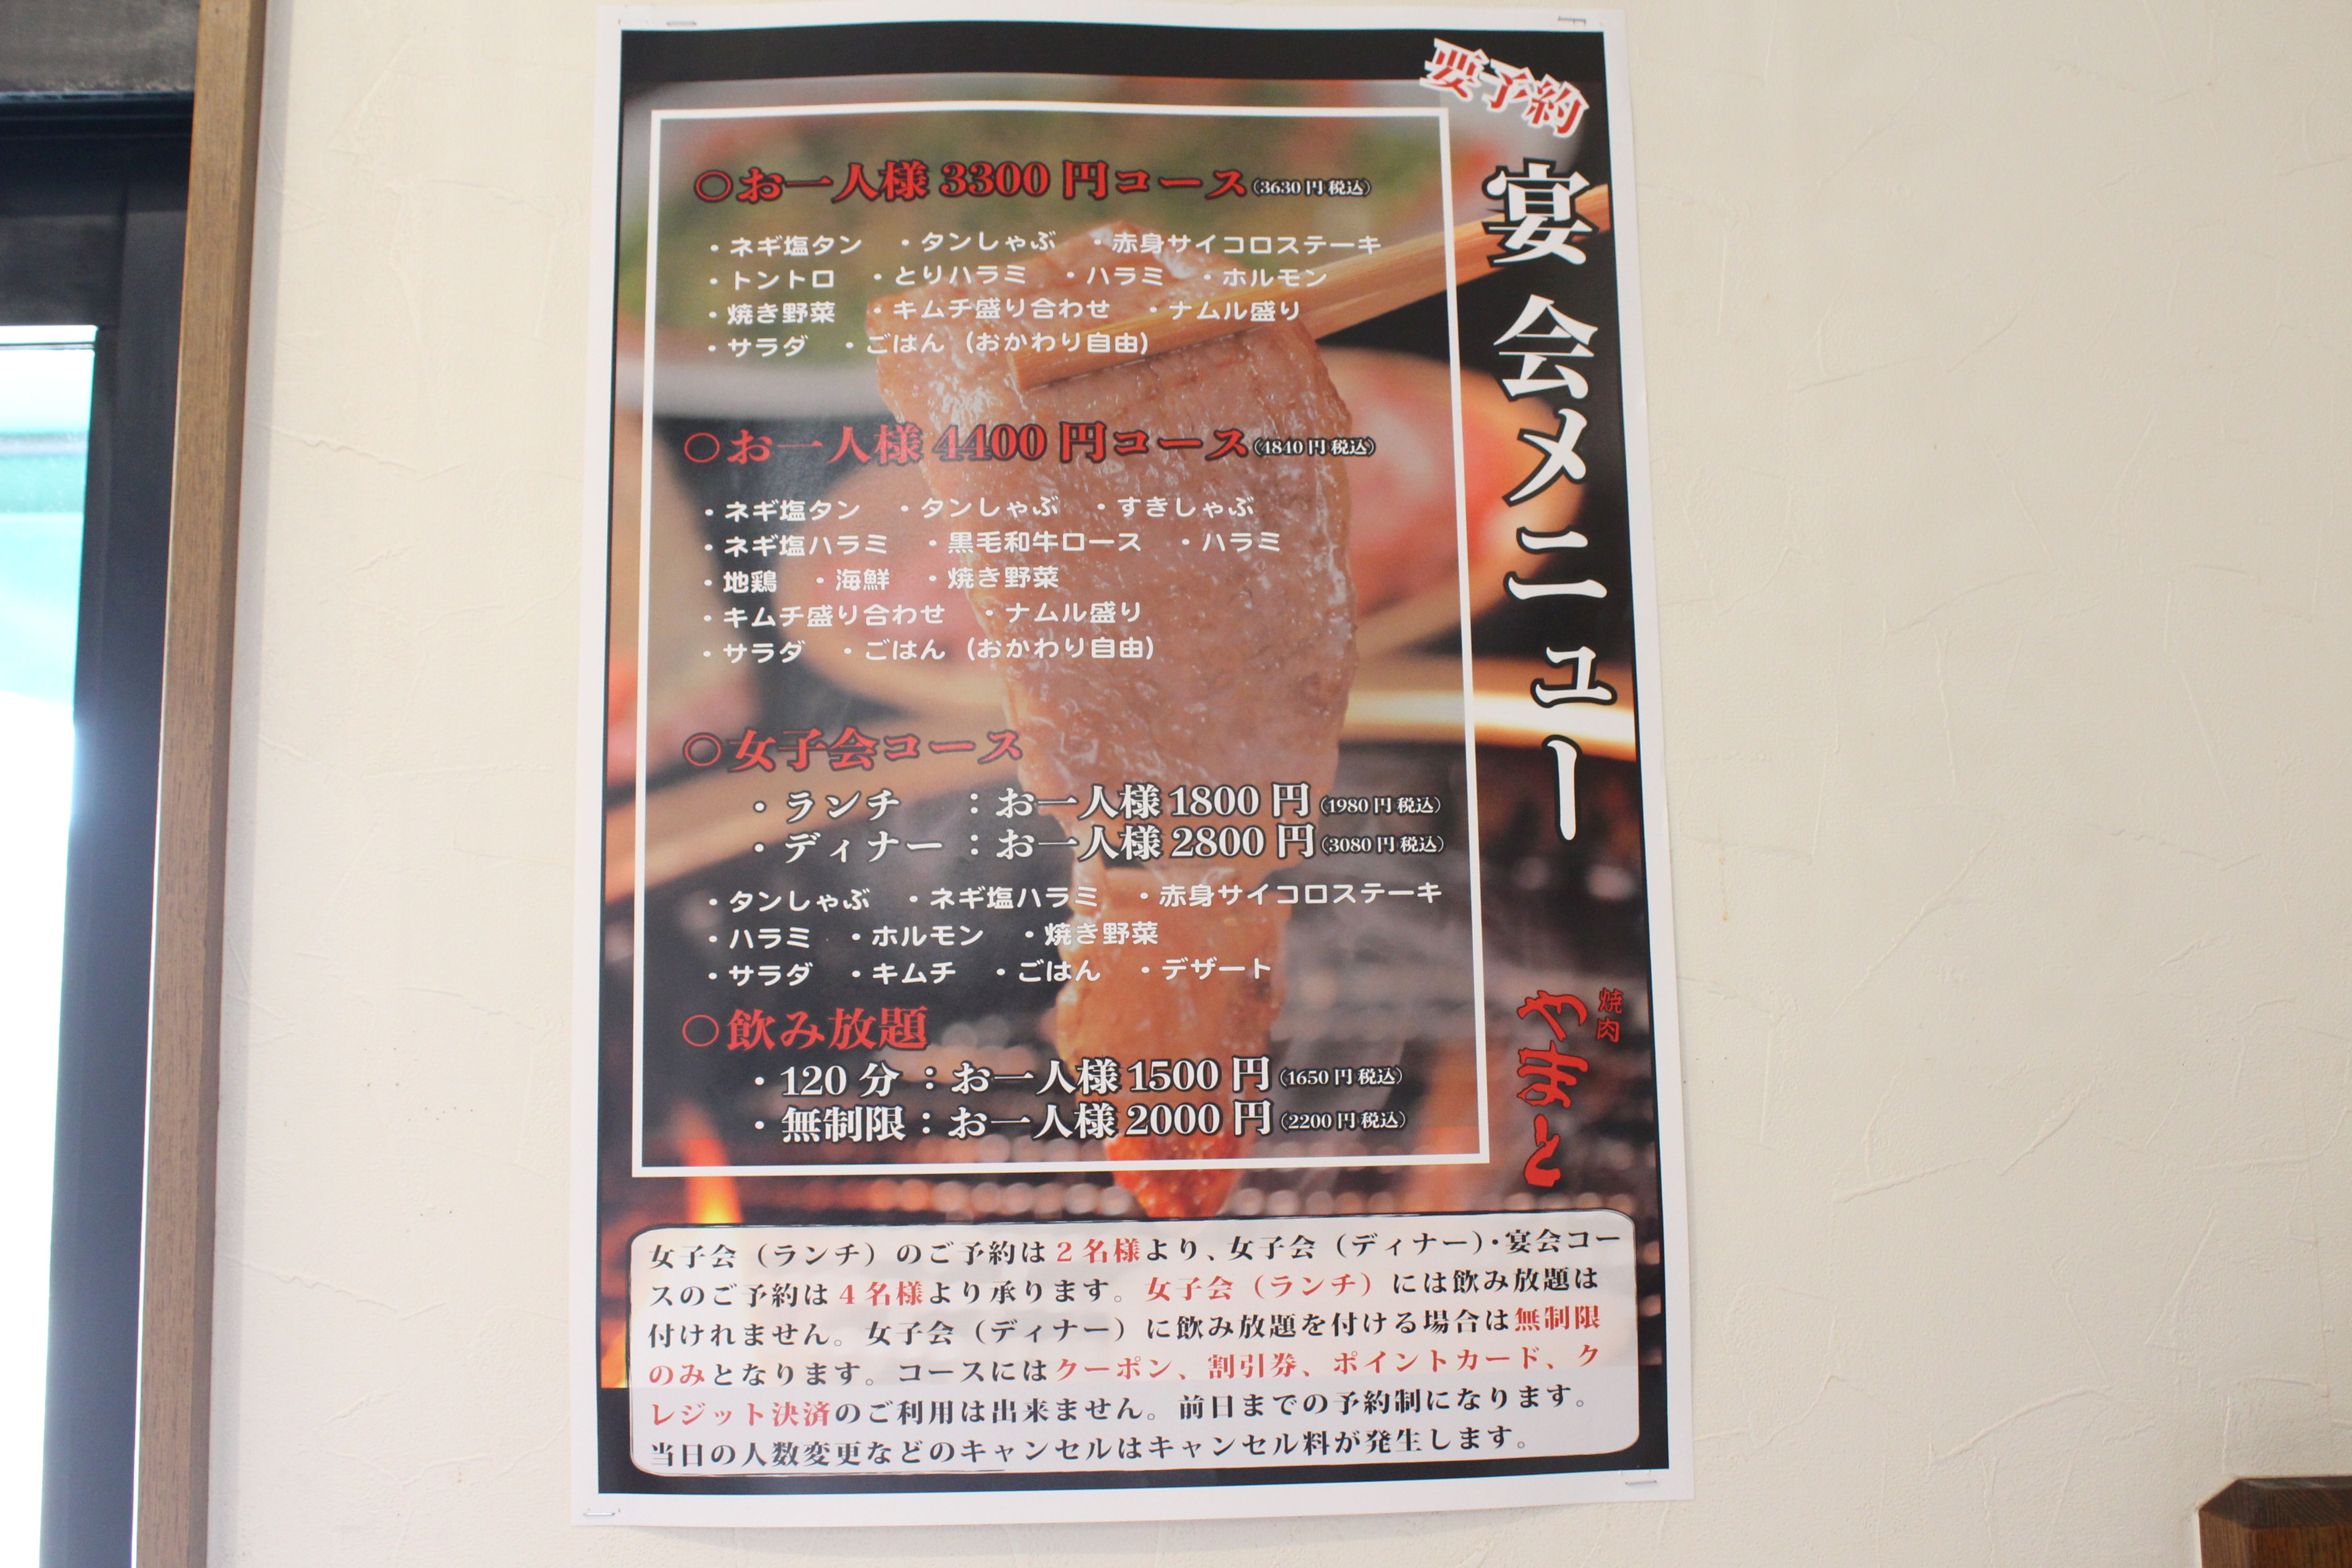 要予約
宴会メニュー
○お一人様3300円コース(3630円税込)
・ネギ塩タン ・タンしゃぶ ・赤身サイコロステーキ
・トントロ ・とりハラミ ・ハラミ ・ホルモン
・焼き野菜 ・キムチ盛り合わせ ・ナムル盛り
・サラダ ・ごはん (おかわり自由)
○お一人様4400円コース(4840円税込)
・ネギ塩タン ・タンしゃぶ ・すきしゃぶ
・ネギ塩ハラミ ・黒毛和牛ロース ・ハラミ
・地鶏 ・海鮮 ・焼き野菜
・キムチ盛り合わせ ・ナムル盛り
・サラダ ・ごはん (おかわり自由)
○女子会コース
・ランチ ：お一人様1800円(1980円税込)
・ディナー：お一人様2800円(3080円税込)
・タンしゃぶ ・ネギ塩ハラミ ・赤身サイコロステーキ
・ハラミ ・ホルモン ・焼き野菜
・サラダ ・キムチ ・ごはん ・デザート
○飲み放題
・120分：お一人様1500円(1650円税込)
・無制限：お一人様2000円(2200円税込)
焼肉
やまと
女子会（ランチ）のご予約は2名様より、女子会（ディナー）・宴会コー
スのご予約は4名様より承ります。女子会（ランチ）には飲み放題は
付けれません。女子会（ディナー）に飲み放題を付ける場合は無制限
のみとなります。コースにはクーポン、割引券、ポイントカード、ク
レジット決済のご利用は出来ません。前日までの予約制になります。
当日の人数変更などのキャンセルはキャンセル料が発生します。